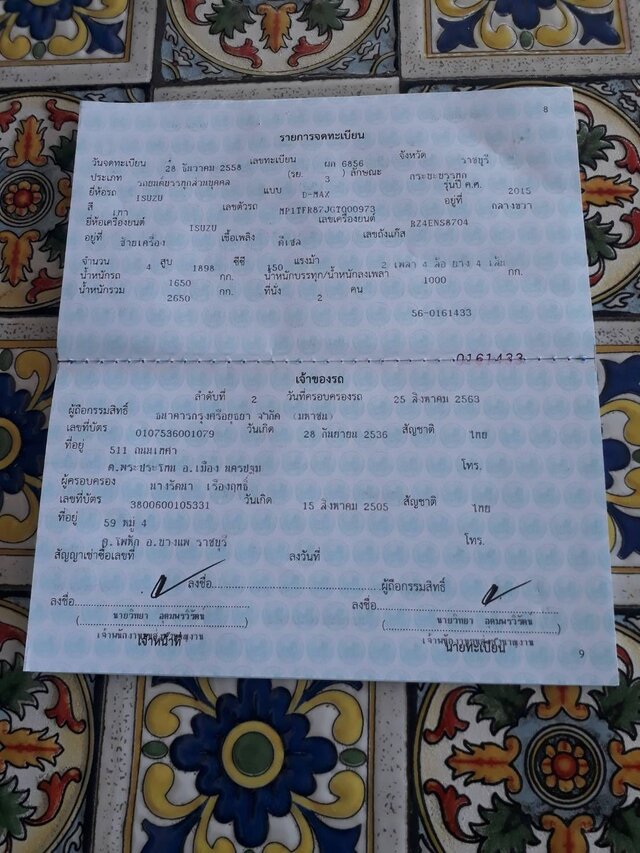 8
รายการจดทะเบียน
วันจดทะเบียน 28 ธันวาคม 2558 เลขทะเบียน ผก 6856 จังหวัด ราชบุรี
ประเภท รถยนต์บรรทุกส่วนบุคคล (รย. 3 ) ลักษณะ กระบะบรรทุก
ยี่ห้อรถ ISUZU แบบ D-MAX รุ่นปี ค.ศ. 2015
สี เทา เลขตัวรถ MP1TFR87JGT000973 อยู่ที่ กลางขวา
ยี่ห้อเครื่องยนต์ ISUZU เลขเครื่องยนต์ RZ4ENS8704
อยู่ที่ ซ้ายเครื่อง เชื้อเพลิง ดีเซล เลขถังแก๊ส
จำนวน 4 สูบ 1898 ซีซี 150 แรงม้า 2 เพลา 4 ล้อ ยาง 4 เส้น
น้ำหนักรถ 1650 กก. น้ำหนักบรรทุก/น้ำหนักลงเพลา 1000 กก.
น้ำหนักรวม 2650 กก. ที่นั่ง 2 คน
56-0161433
0161433
เจ้าของรถ
ลำดับที่ 2 วันที่ครอบครองรถ 25 สิงหาคม 2563
ผู้ถือกรรมสิทธิ์ ธนาคารกรุงศรีอยุธยา จำกัด (มหาชน)
เลขที่บัตร 0107536001079 วันเกิด 28 กันยายน 2536 สัญชาติ ไทย
ที่อยู่ 511 ถนนเทศา
ต.พระประโทน อ.เมือง นครปฐม โทร.
ผู้ครอบครอง นางรัตนา เรืองฤทธิ์
เลขที่บัตร 3800600105331 วันเกิด 15 สิงหาคม 2505 สัญชาติ ไทย
ที่อยู่ 59 หมู่ 4
ต.โพหัก อ.บางแพ ราชบุรี โทร.
สัญญาเช่าซื้อเลขที่ ลงวันที่
ลงชื่อ ผู้ถือกรรมสิทธิ์
ลงชื่อ ลงชื่อ
( นายวิทยา อุดมพรวิรัตน์ ) ( นายวิทยา อุดมพรวิรัตน์ )
เจ้าหน้าที่ นายทะเบียน
9